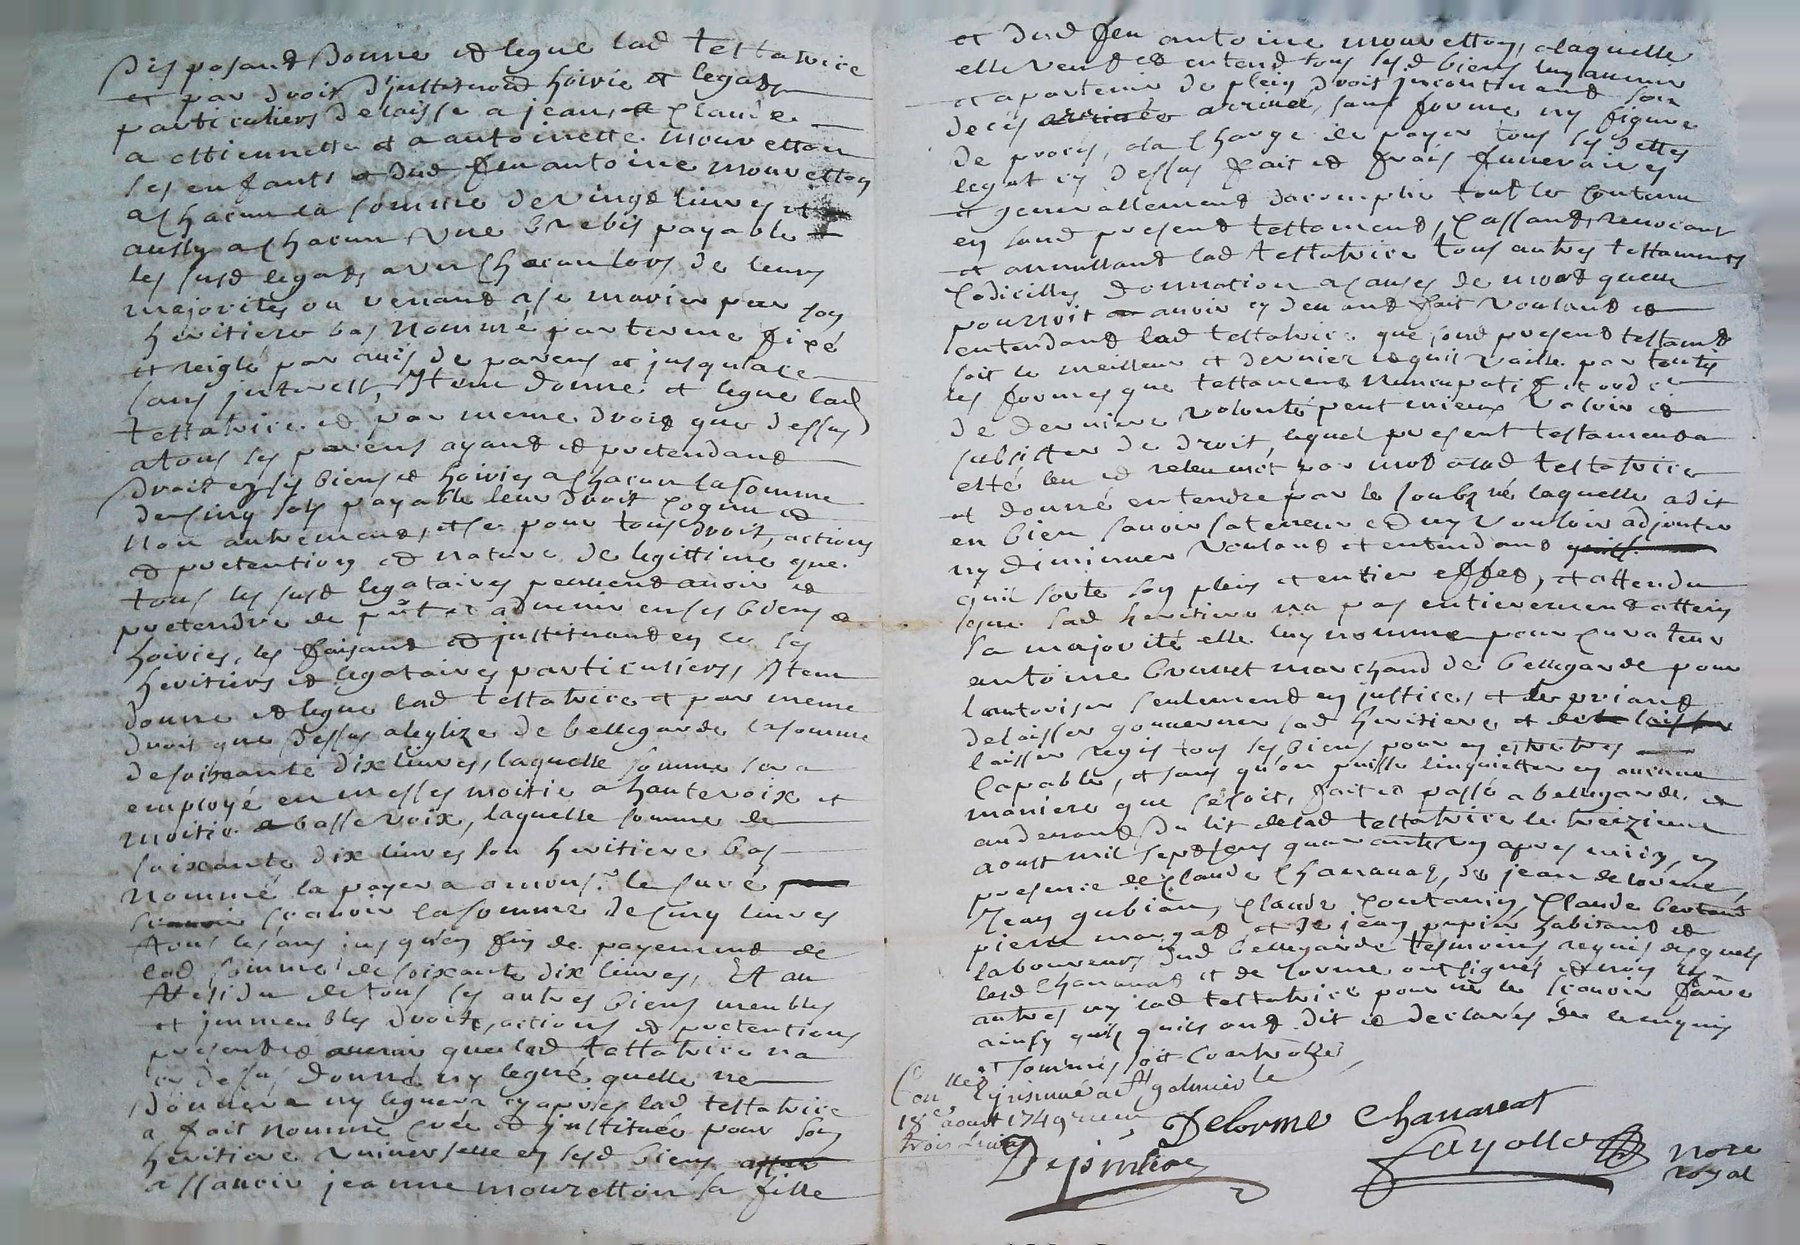 Disposant donne et legue lad testatrice
et par droit d'justitution hoirie et legats
particuliers delaisse a jean, a claude
a ettiennette et a antoinette mouretton
ses enfants et dud feu antoine mouretton
a chacun la somme de vingt livres et
aussy a chacun une brebis payable
les susd legats a un chacun lors de leurs
majorités ou venant a se marier par son
heritiere bas nommé par terme fixé
et reiglé par avis de parens et jusqu'alors
sans jnterest, Jtem donne et legue lad
testatrice et par meme droit que dessus
a tous ses parens ayant et pretendant
droit en ses biens et hoiries a chacun la somme
de cinq sols payable leur droit cognu et
non autrement, et ce pour tous droit, actions
et pretention et nature de legittime que
tous les susd legataires peuvent avoir et
pretendre de put et advenir en ses biens et
hoiries, les faisant et justituant en ce ses
heritiers et legataires particuliers, Jtem
donne et legue lad testatrice et par meme
droit que dessus a leglize de bellegarde la somme
de soixante dix livres, laquelle somme sera
employé en messes moitié a haute voix et
moitié a basse voix, laquelle somme de
soixante dix livres son heritiere bas
nommé la payera a monsr le curé
scavoir la somme de cinq livres
tous les ans jusqu'en fin de payement de
lad somme de soixante dix livres, Et au
Residu de tous ses autres biens meubles
et jmmeubles droits, actions et pretentions
presents et avenir que lad testatrice na
cy dessus donné ny legué, quelle ne
donnera ny leguera cy apres lad testatrice
a fait nommé creé et justitué pour son
heritiere universelle en sesd biens
assavoir jeanne mouretton sa fille
et dud feu antoine mouretton, a laquelle
elle veut et entend tous sesd biens luy advenir
et apartenir de plein droit jncontinant son
deces arrivé, sans forme ny figure
de proces, a la charge de payer tous ses dettes
legat cy dessus fait et frais funeraires
et generallement dacomplir tout le contenu
en sond present testament, Cassant, revocant
et annullant lad testatrice tous autres testaments
Codicilles donnation a causes de mort quelle
pourroit avoir cy devant fait voulant et
entendant lad testatrice que sond present testamt
soit le meilleur et dernier et quil vaille par toutes
les formes que testament nuncupatif et ord
de derniere volonté peut mieux valoir et
subsister de droit, lequel present testament a
esté leu et releu mot par mot a lad testatrice
et donné entendre par le soubzné laquelle a dit
en bien scavoir sa teneur et ny vouloir adjouter
ny diminuer voulant et entendant
quil sorte son plein et entier effet, et attendu
que sad heritiere na pas entierement atteint
sa majorité elle luy nomme pour curateur
antoine brunet marchand de bellegarde pour
l'autoriser seulement en justice, et le priant
delaisser gouverner sad heritiere et
laisser regir tous ses biens pour en estre tres
Capable, et sans qu'on puisse linquietter en aucune
maniere que ce soit, fait et passé a bellegarde et
au devant du lit de lad testatrice le treizieme
aoust mil sept cens quarante neuf apres midy, en
presence de Claude Chanavat, de jean delorme,
Jean gubian, Claude Contanin, Claude bertand
pierre margat et de jean pupier habitant et
laboureurs dud bellegarde tesmoins requis desquels
lesd Chanavat et de lorme ont signés et non les
autres ny lad testatrice pour ne le scavoir faire
ainsy quils ont dit et declarés de ce enquis
et sommés soit Controlle
Conllé & jnsinué a St galmier le
18e aoust 1749 recu
trois livres
Delorme Chanavat
Fayolle nore
royal